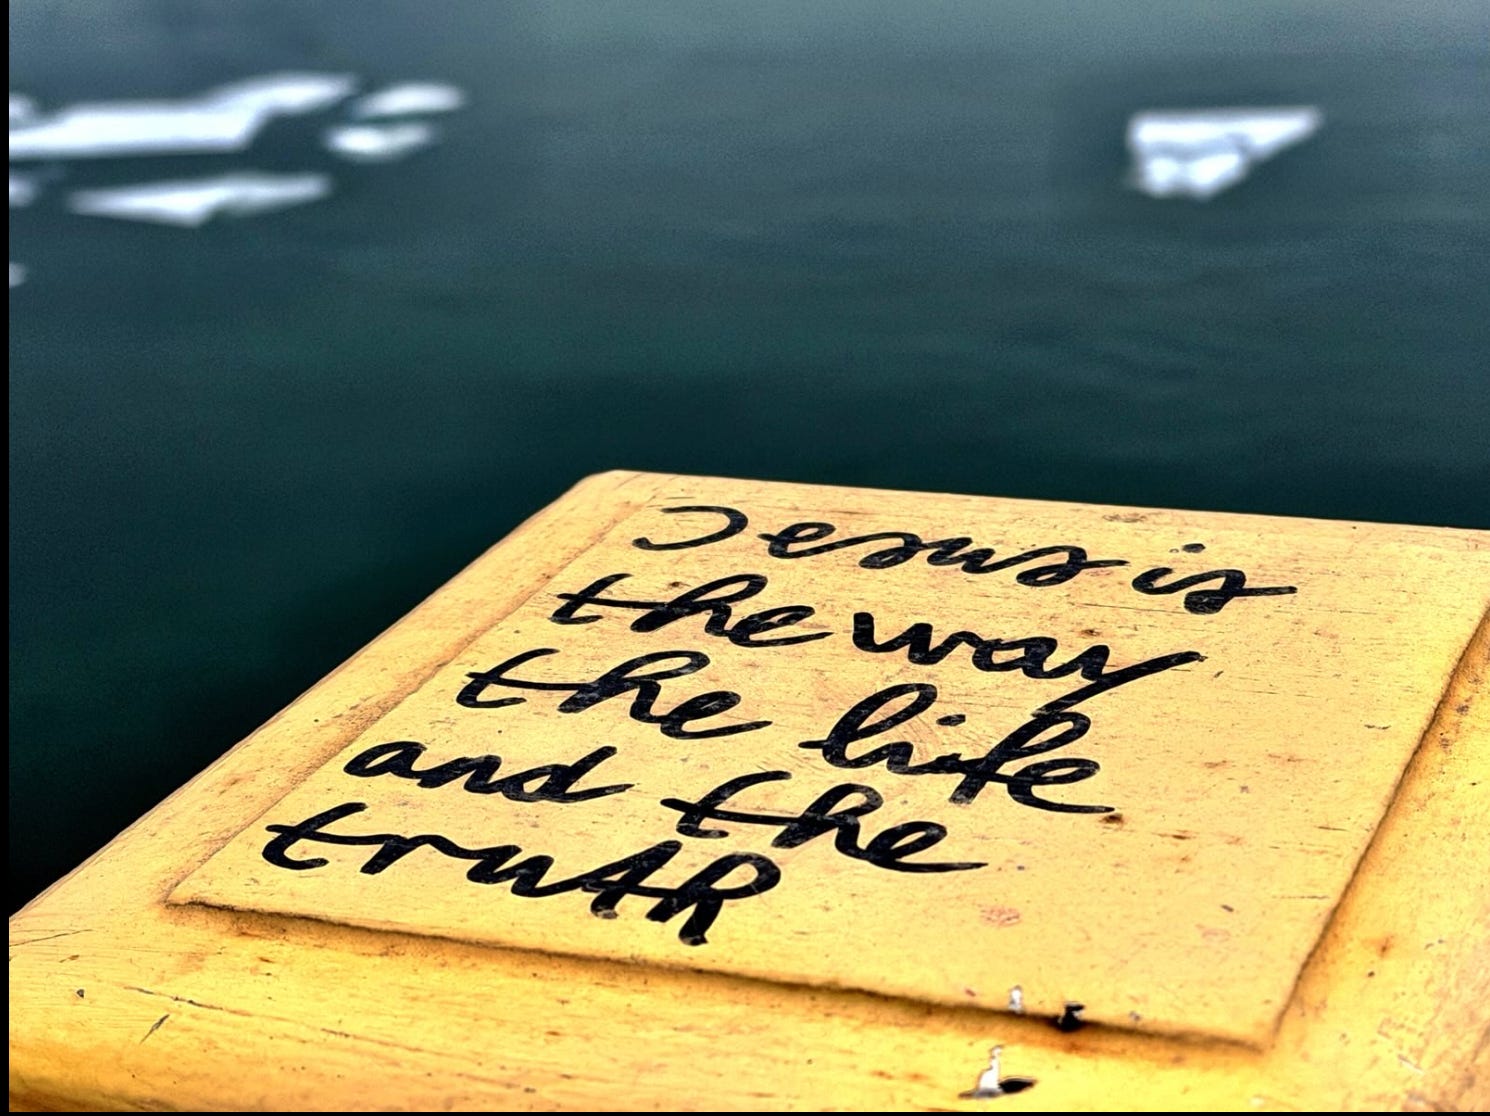 Jesus is
the way
the life
and the
truth